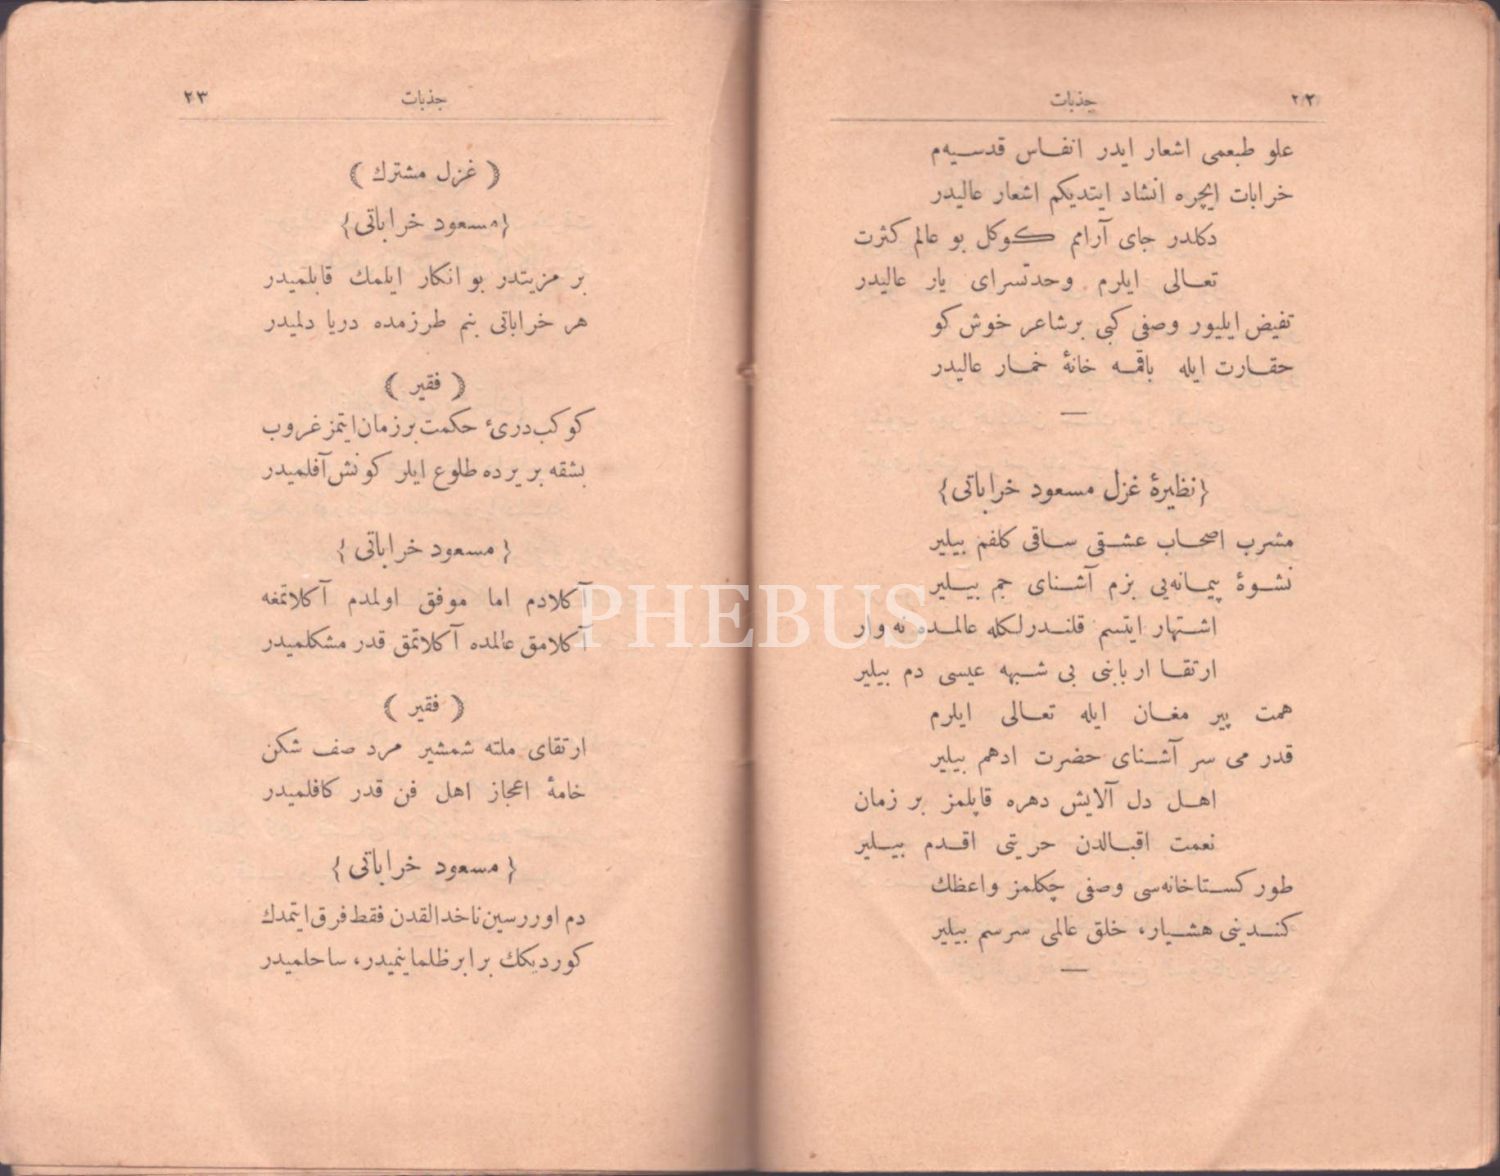 ٢٢ جذبات
علو طبعمی اشعار ایدر انفاس قدسیه‌م
خرابات ایچره انشاد ایتدیكم اشعار عالیدر
دكلدر جای آرامم كوكل بو عالم كثرت
تعالی ایلرم وحدتسرای یار عالیدر
تفیض ایلیور وصفی كبی برشاعر خوش كو
حقارت ایله باقمه خانهٔ خمار عالیدر
{نظیرهٔ غزل مسعود خراباتی}
مشرب اصحاب عشقی ساقی كلفم بیلیر
نشوهٔ پیمانه‌یی بزم آشنای جم بیلیر
اشتهار ایتسم قلندرلكله عالمده نه وار
ارتقا اربابنی بی شبهه عیسی دم بیلیر
همت پیر مغان ایله تعالی ایلرم
قدر می سر آشنای حضرت ادهم بیلیر
اهل دل آلایش دهره قاپلمز بر زمان
نعمت اقبالدن حریتی اقدم بیلیر
طور كستاخانه‌سی وصفی چكلمز واعظك
كندینی هشیار، خلق عالمی سرسم بیلیر
جذبات ٢٣
(غزل مشترك)
{مسعود خراباتی}
بر مزیتدر بو انكار ایلمك قابلمیدر
هر خراباتی بنم طرزمده دریا دلمیدر
(فقیر)
كوكب دریٔ حكمت برزمان ایتمز غروب
بشقه بر یرده طلوع ایلر كونش آفلمیدر
{مسعود خراباتی}
آكلادم اما موفق اولمدم آكلاتمغه
آكلامق عالمده آكلاتمق قدر مشكلمیدر
(فقیر)
ارتقای ملته شمشیر مرد صف شكن
خامهٔ اعجاز اهل فن قدر كافلمیدر
{مسعود خراباتی}
دم اوررسین ناخدالقدن فقط فرق ایتمدك
كوردیكك برابر ظلماینمیدر، ساحلمیدر
PHEBUS